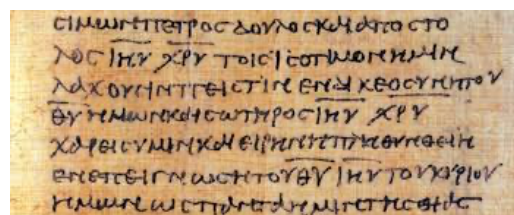 ϹΙΜΩΝΠΕΤΡΟϹΔΟΥΛΟϹΚΑΙΑΠΟϹΤΟ
ΛΟϹΙΗΥΧΡΥΤΟΙϹΙϹΟΤΙΜΟΝΗΜΙΝ
ΛΑΧΟΥϹΙΝΠΕΙϹΤΙΝΕΝΔΙΚΕΟϹΥΝΗΤΟΥ
ΘΥΗΜΩΝΚΑΙϹΩΤΗΡΟϹΙΗΥΧΡΥ
ΧΑΡΕΙϹΥΜΙΝΚΑΙΕΙΡΗΝΗΠΛΗΘΥΝΘΕΙΗ
ΕΝΕΠΕΙΓΝΩϹΗΤΟΥΘΥΙΗΥΤΟΥΚΥΡΙΟΥ
ΗΜΩΝΩϹΠΑΝΤΑΗΜΙΝΤΗϹ